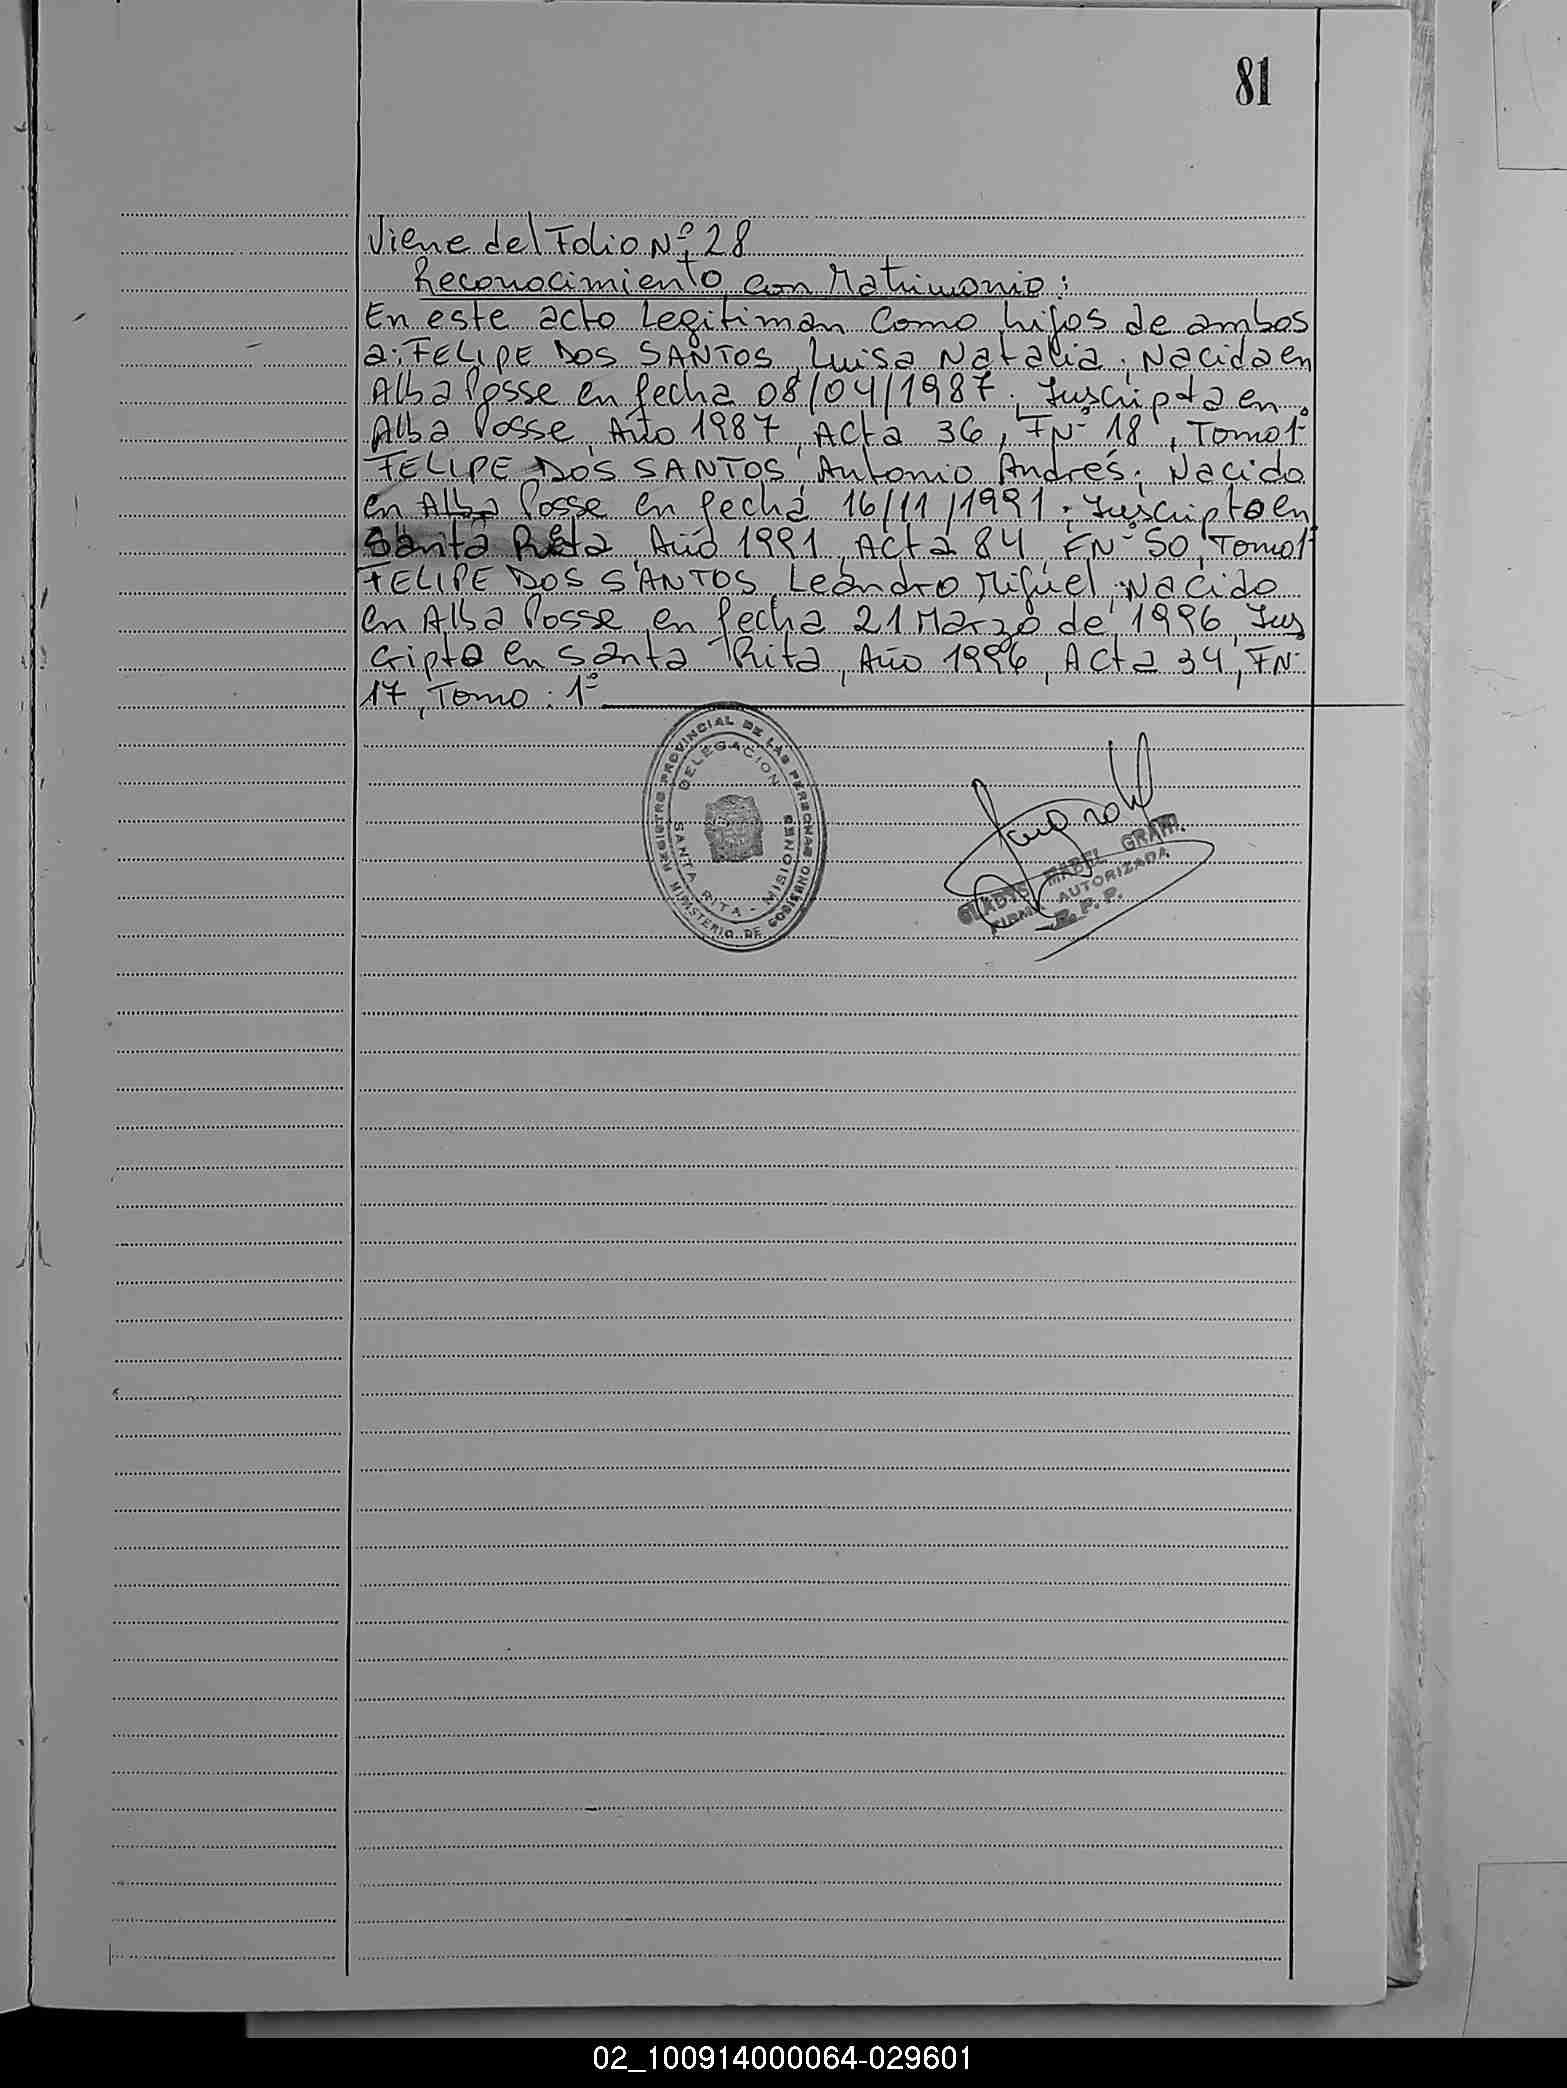 81
Viene del Folio Nº 28
Reconocimiento con Matrimonio:
En este acto Legitiman como hijos de ambos
a: FELIPE DOS SANTOS, Luisa Natalia; Nacida en
Alba Posse en fecha 08/04/1987; Inscripta en
Alba Posse, Año 1987, Acta 36, Fº Nº 18, Tomo 1º
FELIPE DOS SANTOS, Antonio Andrés; Nacido
en Alba Posse en fecha 16/11/1991; Inscripto en
Santa Rita, Año 1991, Acta 84, Fº Nº 50, Tomo 1º
FELIPE DOS SANTOS, Leandro Miguel; Nacido
en Alba Posse en fecha 21 Marzo de 1996, Ins
cripto en Santa Rita, Año 1996, Acta 34, Fº Nº
17, Tomo: 1º
REGISTRO PROVINCIAL DE LAS PERSONAS
MINISTERIO DE GOBIERNO
DELEGACION
SANTA RITA - MISIONES
GLADYS MABEL GRAHL
FIRMA AUTORIZADA
R. P. P.
02_100914000064-029601